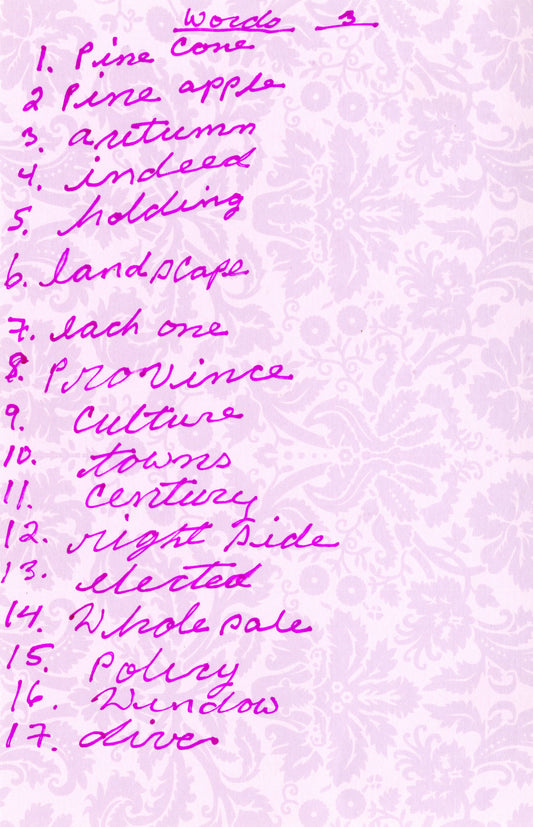 Words 3
1. Pine Cone
2 Pine apple
3. autumn
4. indeed
5. holding
6. landscape
7. each one
8. Province
9. Culture
10. towns
11. Century
12. right side
13. elected
14. Whole sale
15. Policy
16. Window
17. dives